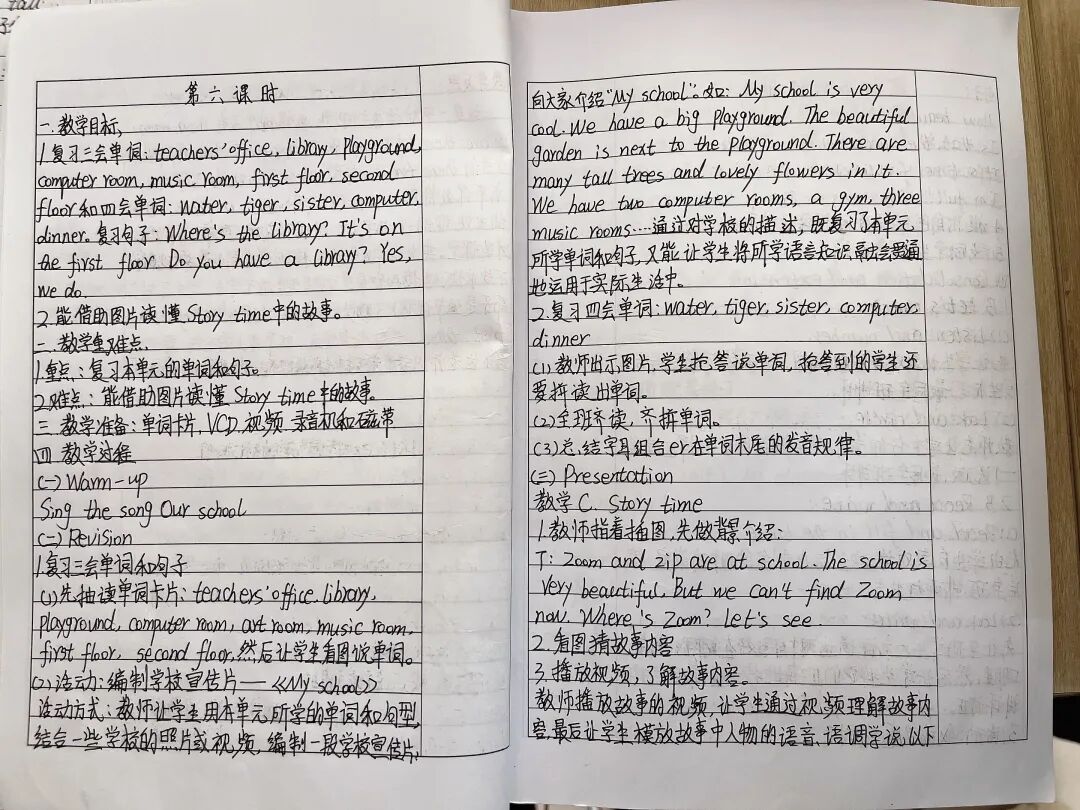 tall
第六课时
一.教学目标
1.复习三会单词:teachers' office, library, playground,
computer room, music room, first floor, second
floor和四会单词:water, tiger, sister, computer,
dinner.复习句子:Where's the library? It's on
the first floor. Do you have a library? Yes,
we do.
2.能借助图片读懂Story time中的故事。
二.教学重难点.
1.重点:复习本单元的单词和句子。
2.难点:能借助图片读懂Story time中的故事。
三.教学准备:单词卡片,VCD,视频,录音机和磁带
四.教学过程
(一)Warm-up
Sing the song Our school
(二)Revision
1.复习三会单词和句子
(1)先抽读单词卡片:teachers' office. library,
playground, computer room, art room, music room,
first floor, second floor,然后让学生看图说单词。
(2)活动:编制学校宣传片——《My school》
活动方式:教师让学生用本单元所学的单词和句型,
结合一些学校的照片或视频,编制一段学校宣传片,
向大家介绍"My school".如: My school is very
cool. We have a big playground. The beautiful
garden is next to the playground. There are
many tall trees and lovely flowers in it.
We have two computer rooms, a gym, three
music rooms....通过对学校的描述,既复习了本单元
所学单词和句子,又能让学生将所学语言知识融会贯通
地运用于实际生活中。
2.复习四会单词:water, tiger, sister, computer,
dinner
(1)教师出示图片,学生抢答说单词,抢答到的学生还
要拼读出单词。
(2)全班齐读,齐拼单词。
(3)总结字母组合er在单词末尾的发音规律。
(三)Presentation
教学C. Story time
1.教师指着插图,先做背景介绍:
T: Zoom and Zip are at school. The school is
very beautiful, But we can't find Zoom
now. Where's Zoom? Let's see
2.看图猜故事内容
3.播放视频,了解故事内容。
教师播放故事的视频,让学生通过视频理解故事内
容,最后让学生模放故事中人物的语音、语调学说以下